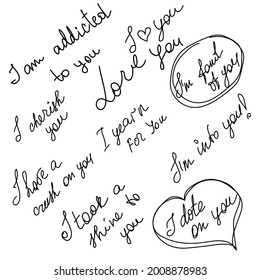 I am addicted
to you
I ♡ you
Love
you
I'm fond
of you
I cherish
you
I year'n
For You
I'm into you!
I have a
crush on you
I took a
shine to
you
I dote
on you
shutterstock.com · 2008878983